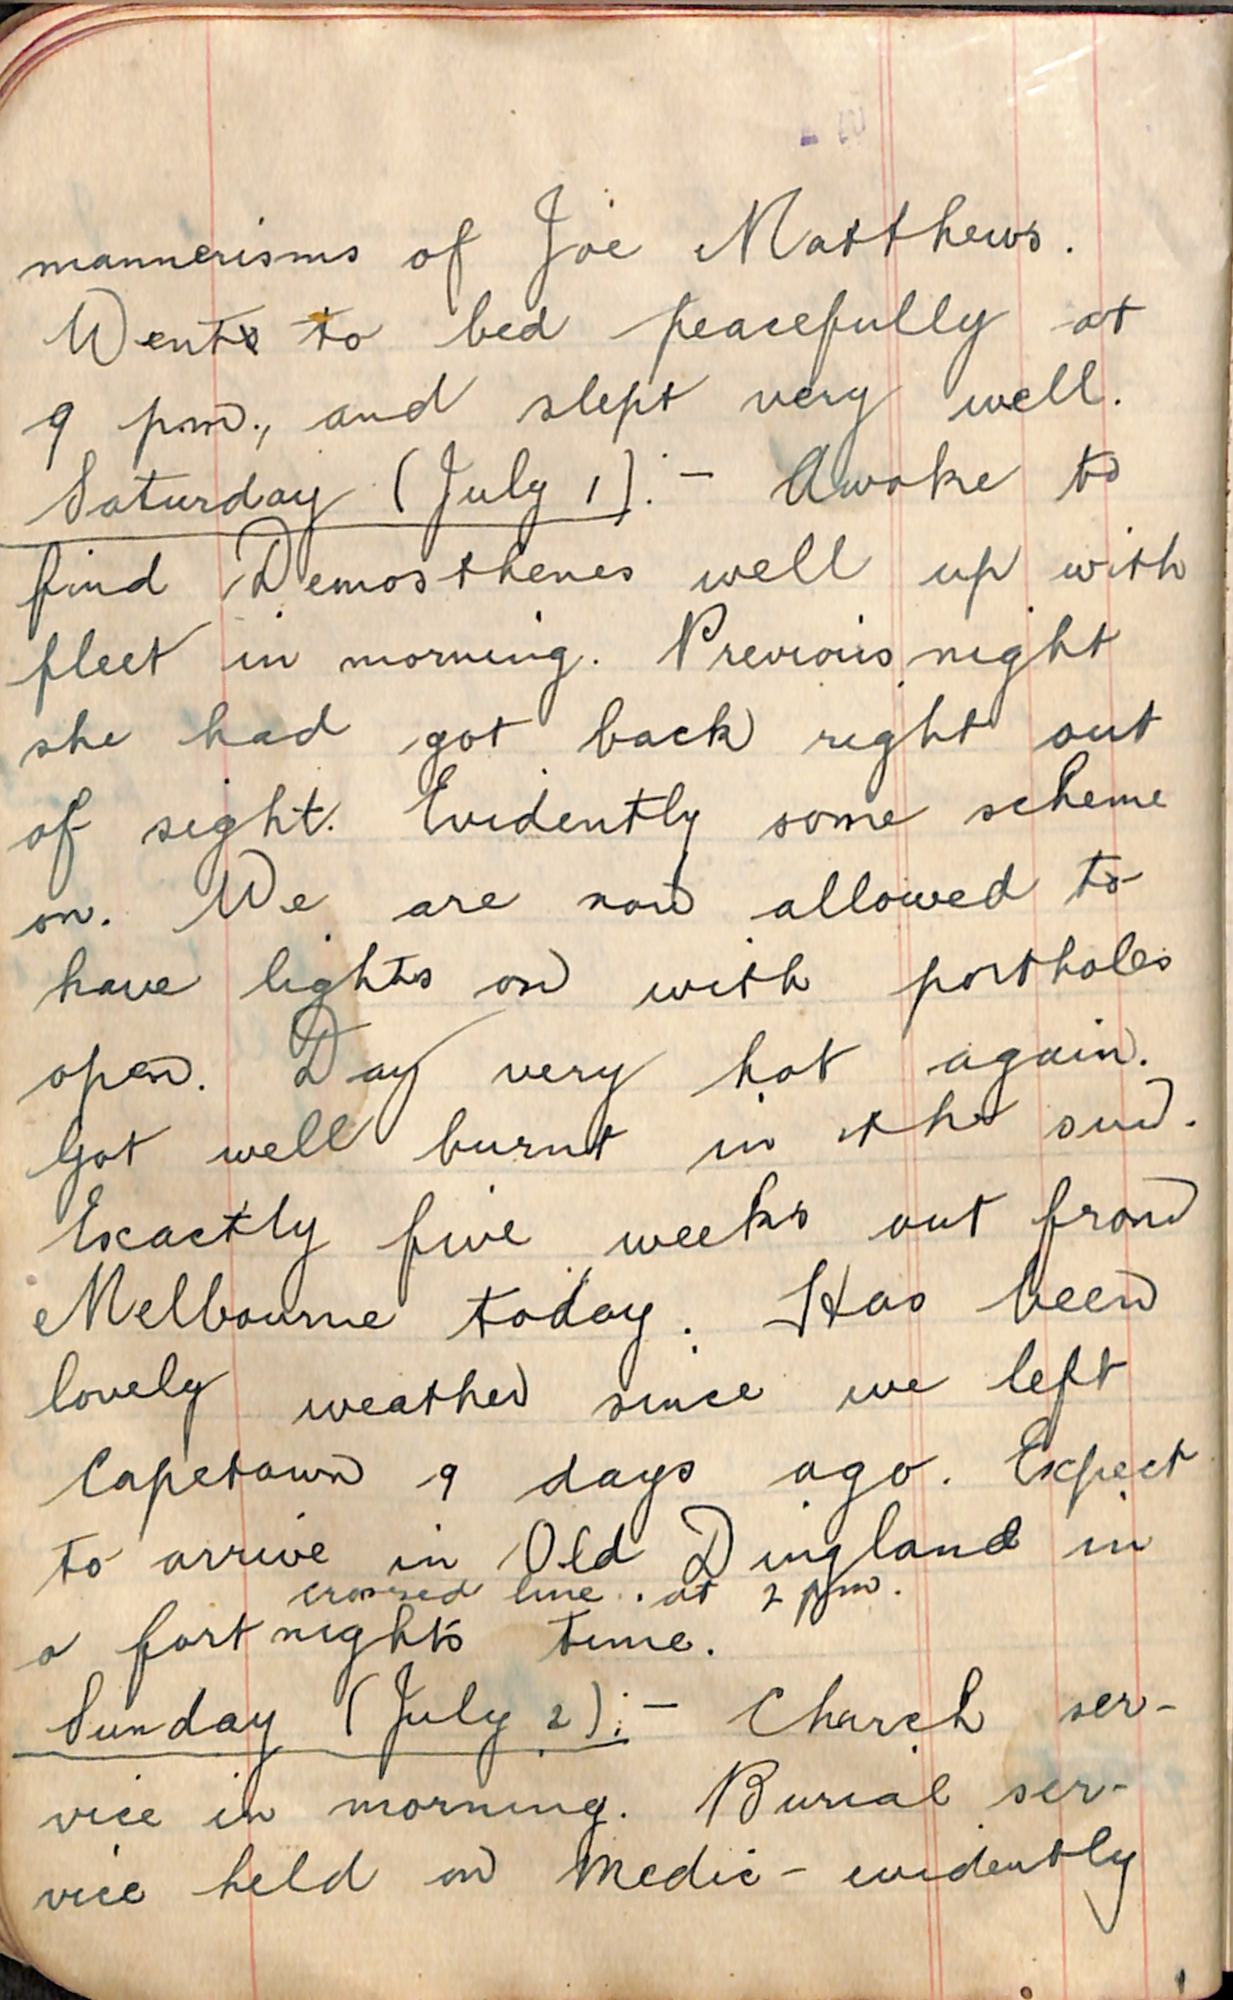 mannerisms of Joe Matthews.
Went to bed peacefully at
9 pm., and slept very well.
Saturday (July 1):- Awoke to
find Demosthenes well up with
fleet in morning. Previous night
she had got back right out
of sight. Evidently some scheme
on. We are now allowed to
have lights on with portholes
open. Day very hot again.
Got well burnt in the sun.
Exactly five weeks out from
Melbourne today. Has been
lovely weather since we left
Capetown 9 days ago. Expect
to arrive in Old Dingland in
crossed line at 2 pm.
a fortnights time.
Sunday (July 2):- Church ser-
vice in morning. Burial ser-
vice held on Medic - evidently